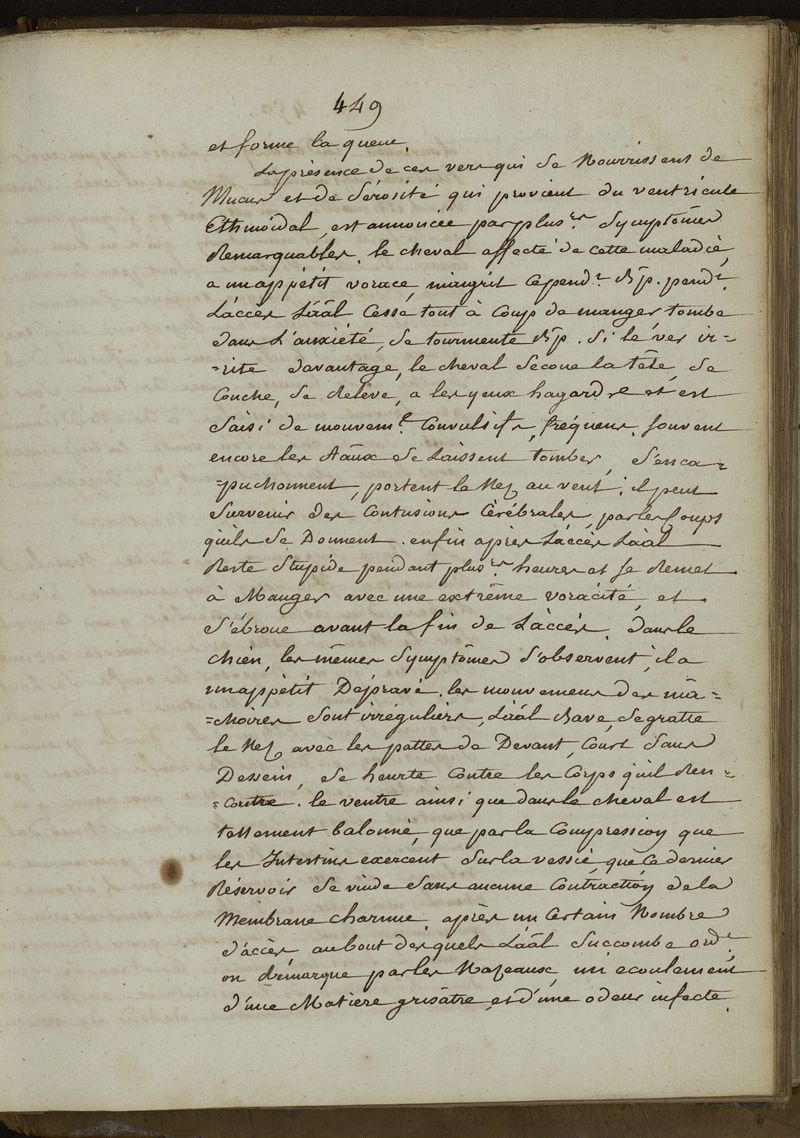 449
et forme la queue.
La présence de ces vers qui se Nourrissent de
Mucus et de Sérosité qui provient du ventricule
Ethmoïdal, est annoncée par plus.rs Symptômes
Remarquables. le cheval affecté de cette maladie,
a un appétit vorace, maigrit cepend.t &p. pend.t
L'accès L'aâl Cesse tout à Coup de manger tombe
dans L'anxiété, se tourmente &p. Si le ver ir-
-rite davantage, le cheval secoue la tête, se
Couche, se Relève, a les yeux hagards et est
Saisi de mouvem.t Convulsifs, fréquens. souvent
encore les Aâux se Laissent tomber, s'enca-
-puchonnent, portent le Nez au vent; il peut
Survenir des Contusions Cérébrales, par les Coups
qu'ils se Donnent. enfin après L'accès L'aâl
Reste Stupide pendant plus.rs heures et se Remet
à Manger avec une extrême voracité, et
S'ébroue avant la fin de L'accès. dans le
chien, les mêmes Symptômes s'observent, il a
un appétit Dépravé. les mouvemens des mâ-
-choires sont irréguliers, L'aâl Bave, se gratte
le Nez avec les pattes de Devant, Court Sans
Dessein, se heurte Contre les Corps qu'il Ren-
-contre. le ventre ainsi que dans le cheval est
tellement balonné, que par la Compression que
les Intestins exercent Sur la vessie, que Ce dernier
Réservoir se vuide sans aucune Contraction de la
Membrane charnue. après un Certain Nombre
d'accès au bout desquels L'aâl Succombe ord.t
on Remarque par les Nazeaux, un écoulement
d'une Matière grisâtre et d'une odeur infecte.